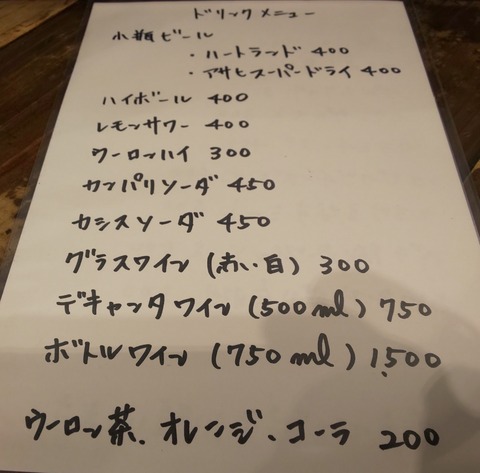 ドリンクメニュー
小瓶ビール
・ハートランド 400
・アサヒスーパードライ 400
ハイボール 400
レモンサワー 400
ウーロンハイ 300
カンパリソーダ 450
カシスソーダ 450
グラスワイン (赤い白) 300
デキャンタワイン (500ml) 750
ボトルワイン (750ml) 1,500
ウーロン茶、オレンジ、コーラ 200